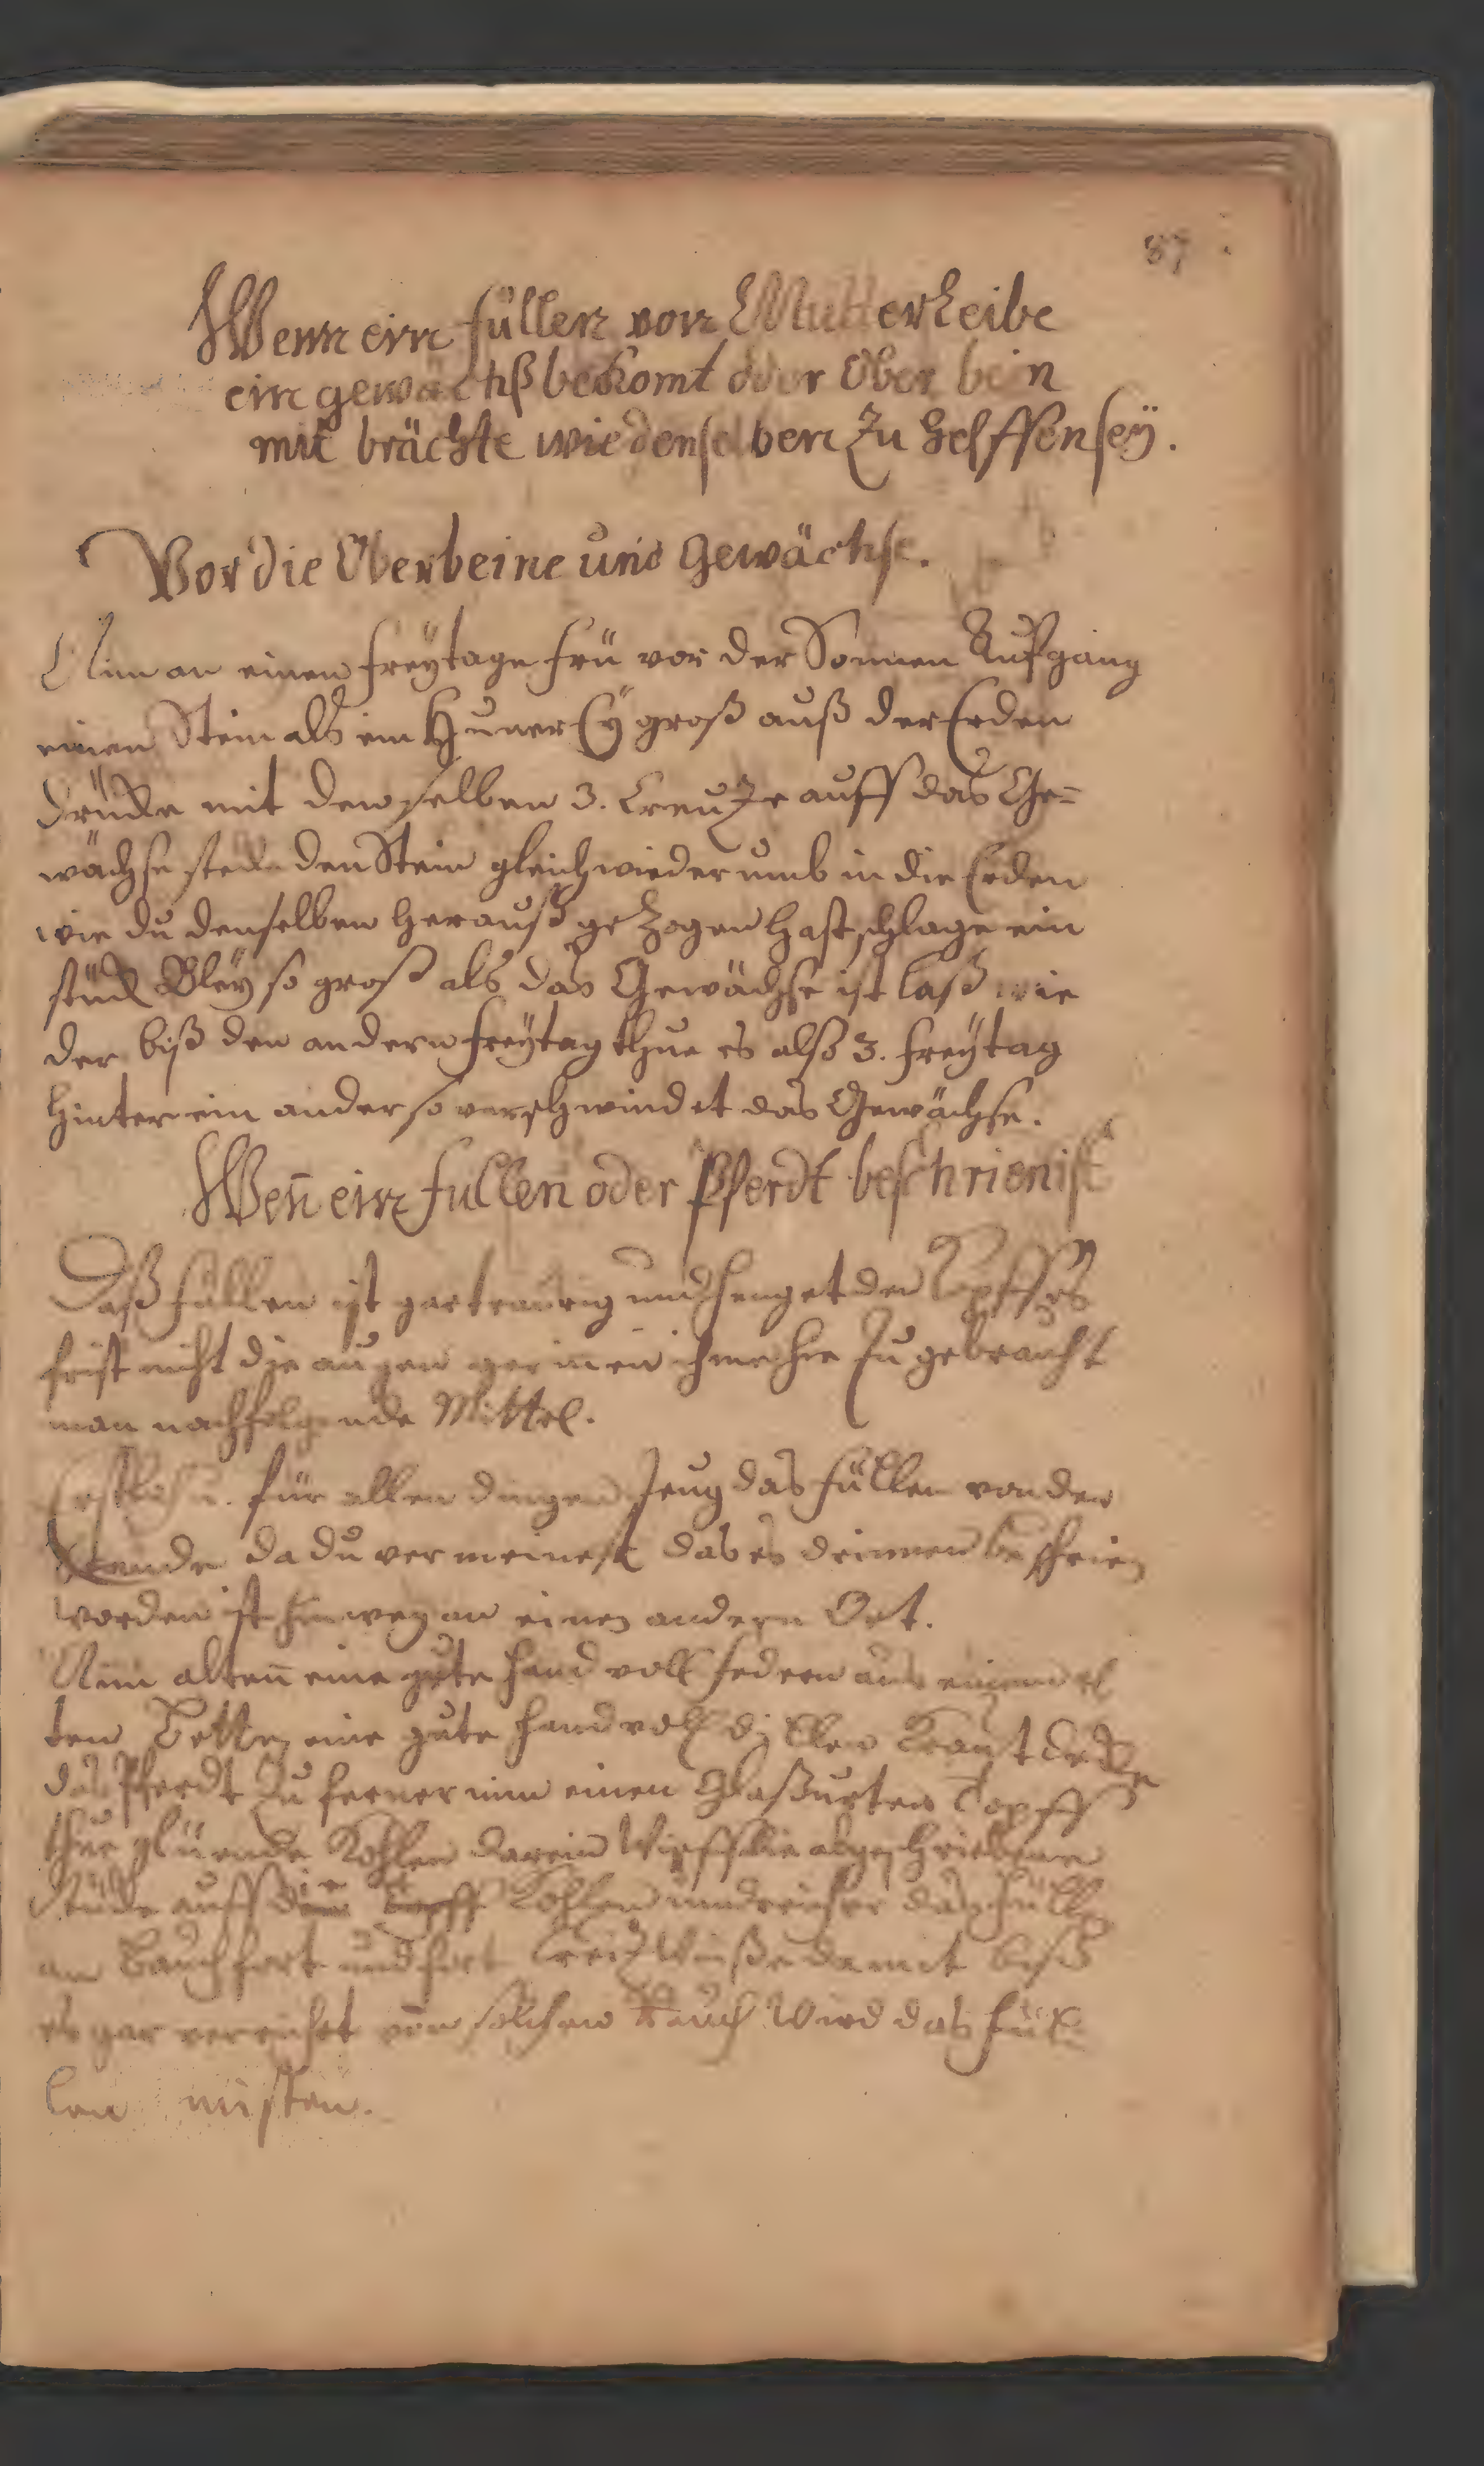 87
Wenn ein füllen von MutterLeibe
ein gewächß bekomt oder Ober bein
mit brächte wie denselben Zu helffen seÿ.
Vor die Oberbeine und Gewächse.
Nim an einen freÿtage frü vor der Sonnen Aufgang
einen Stein als ein Huner Eÿ groß auß der Erden
drücke mit denselben 3. Creutze auff das Ge=
wächse stecke den Stein gleich wieder umb in die Erden
wie du denselben herauß gezogen hast schlage ein
stück Bleÿ so groß als das Gewächse ist laß wie
der biß den andern freÿtag thue es also 3. freÿtag
hinter ein ander so verschwindet das Gewächse.
Weñ ein fullen oder Pferdt beschrien ist
Daß füllen ist gar traurig und henget den Kopff es
frist nicht die augen ihme hie Zu gebraucht
man nachfolgende Mittel.
für allen dingen Zeug das füllen von der
Stande da du vermeinest das es drinnen beschrien
worden ist hinweg an einen andern Ort.
Nim alten eine gute hand voll federn aus einem al
ten Bette eine gute handvoll dillen Kraut decke
das Pferdt Zu ferner nim einen Glaßurten Topff
thue glüende Kohlen darein Wirff die abgeschriebene
Stücke auff die Kohlen und reucher das füllen
am Bauch fort und fort Creutz Weiße damit biß
es gar verreuchet von solchen Rauch Wird das fül
len misten.